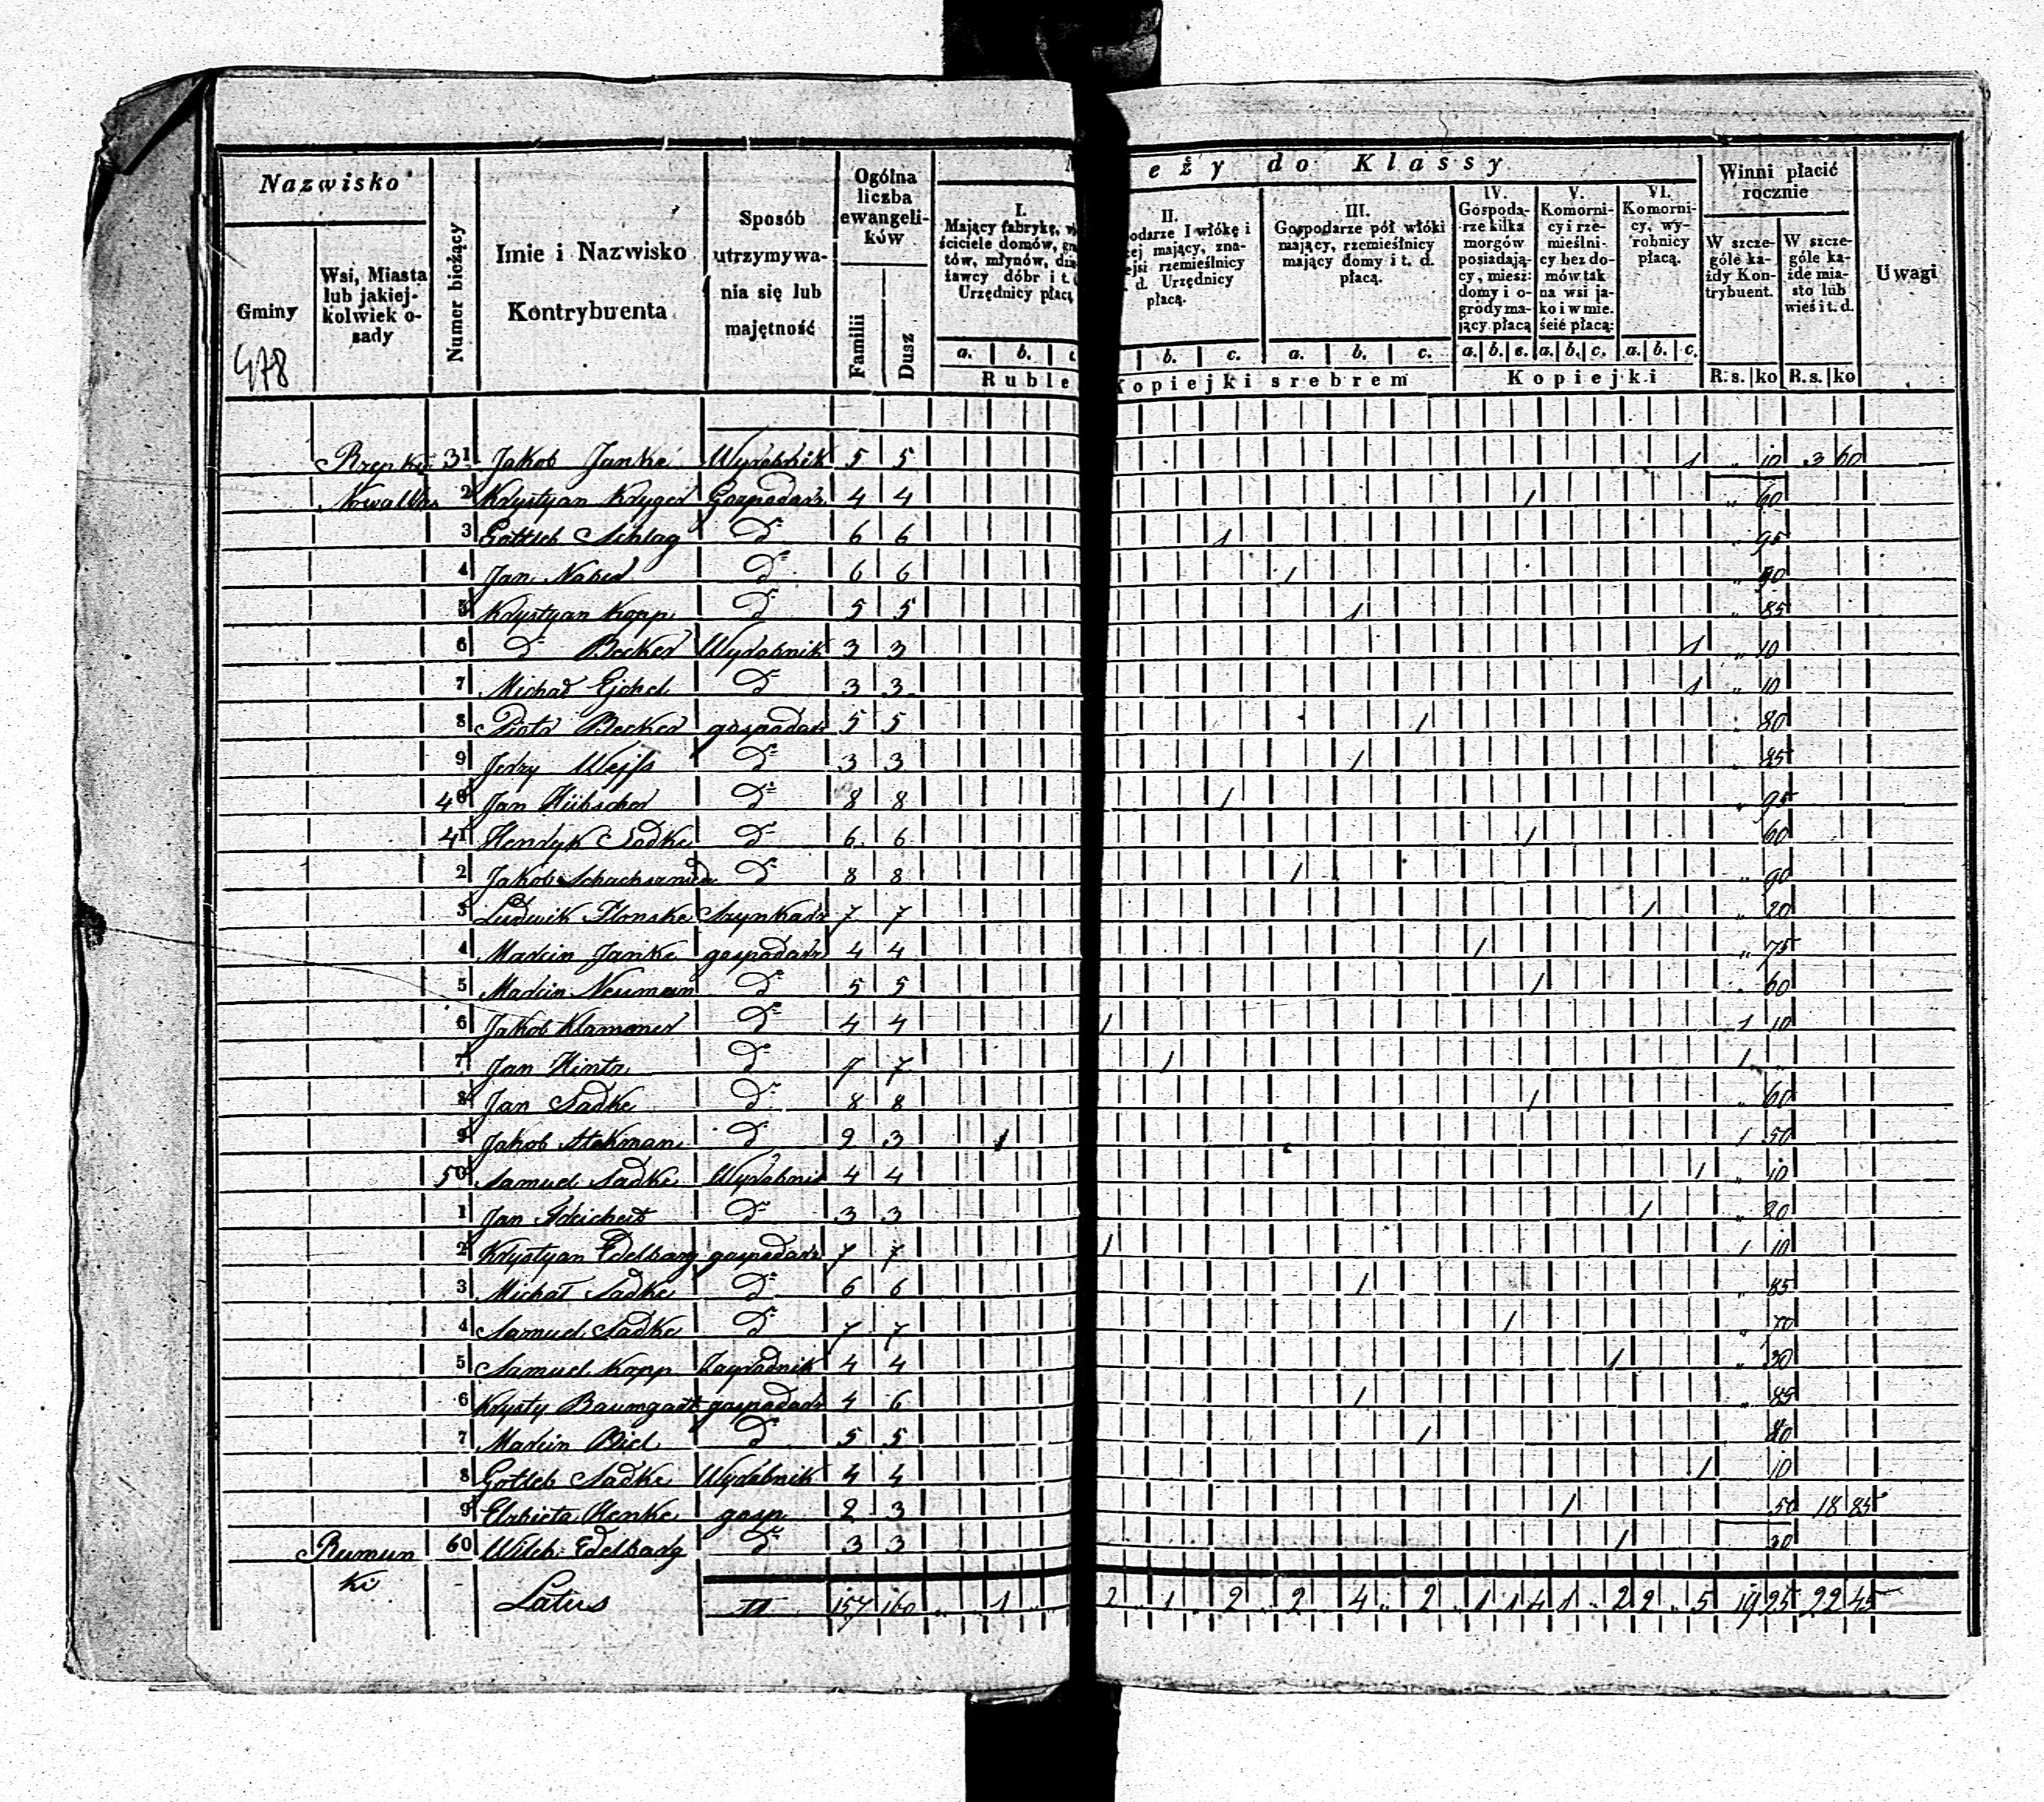 Nazwisko
Gminy
478
Wsi, Miasta lub jakiej-kolwiek o-sady
Numer bieżący
Imie i Nazwisko Kontrybuenta
Sposób utrzymywa-nia się lub majętność
Ogólna liczba ewangeli-ków
Familii Dusz
eży do Klassy
I. Mający fabrykę, ściciele domów, tów, młynów, ławcy dóbr i t. Urzędnicy płacą
a. b.
II. odarze I włókę i cej mający, zna- jsi rzemieślnicy d. Urzędnicy płacą.
b. c.
III. Gospodarze pół włóki mający, rzemieślnicy mający domy i t. d. płacą.
a. b. c.
IV. Gospoda-rze kilka morgów posiadają-cy, miesz: domy i o-grody ma-jący płacą
a. b. c.
V. Komorni-cy i rze-mieślni-cy bez do-mów tak na wsi ja-ko i w mie.ście płacą:
a. b. c.
VI. Komorni-cy, wy-robnicy płacą.
a. b. c.
Ruble Kopiejki srebrem Kopiejki
Winni płacić rocznie
W szcze-góle ka-żdy Kon-trybuent.
W szcze-góle ka-żde mia-sto lub wieś i t. d.
R.s. ko R.s. ko
Uwagi
Rzepki 31 Jakob Janke Wyrobnik 5 5 1 " 10 3 60
Nowa Wieś 2 Krystyan Kryger Gospodarz 4 4 1 " 60
3 Gottlieb Schlag d° 6 6 1 " 95
4 Jan Naber d° 6 6 1 " 90
5 Krystyan Kopp d° 5 5 1 " 85
6 d° Becker Wyrobnik 3 3 1 " 10
7 Michał Ejchel d° 3 3 1 " 10
8 Piotr Becker gospodarz 5 5 1 " 80
9 Jerzy Wejss d° 3 3 1 " 85
40 Jan Hübscher d° 8 8 1 " 95
41 Henryk Sadke d° 6 6 1 60
2 Jakob d° 8 8 1 " 90
3 Ludwik Plonske Szynkarz 7 7 1 " 20
4 Marcin Janke gospodarz 4 4 1 " 75
5 Marcin Neuman d° 5 5 1 " 60
6 Jakob Klammer d° 4 4 1 1 10
7 Jan Hintz d° 7 7 1 1 "
8 Jan Sadke d° 8 8 1 " 60
9 Jakob Stekman d° 2 3 1 1 50
50 Samuel Sadke Wyrobnik 4 4 1 " 10
1 Jan d° 3 3 1 " 20
2 Krystyan Edelbarg gospodarz 7 7 1 1 10
3 Michał Sadke d° 6 6 1 " 85
4 Samuel Sadke d° 7 7 1 " 70
5 Samuel Kopp Zagrodnik 4 4 1 " 30
6 Krysty Baumgart gospodarz 4 6 1 " 85
7 Marcin Biel d° 5 5 1 80
8 Gotleb Sadke Wyrobnik 4 4 1 10
9 Elzbieta Henke gosp 2 3 1 50 18 85
Rumunki 60 Wilch: Edelbarg d° 3 3 1 30
Latus 157 160 1 2 1 2 2 4 2 1 1 4 1 2 2 5 19 25 22 45